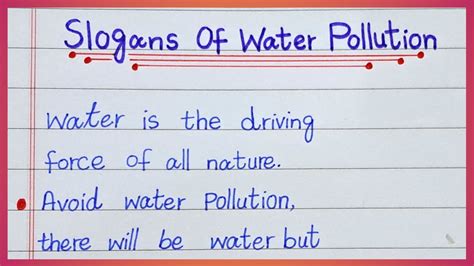 Slogans Of Water Pollution
Water is the driving
force of all nature.
Avoid water Pollution,
there will be water but